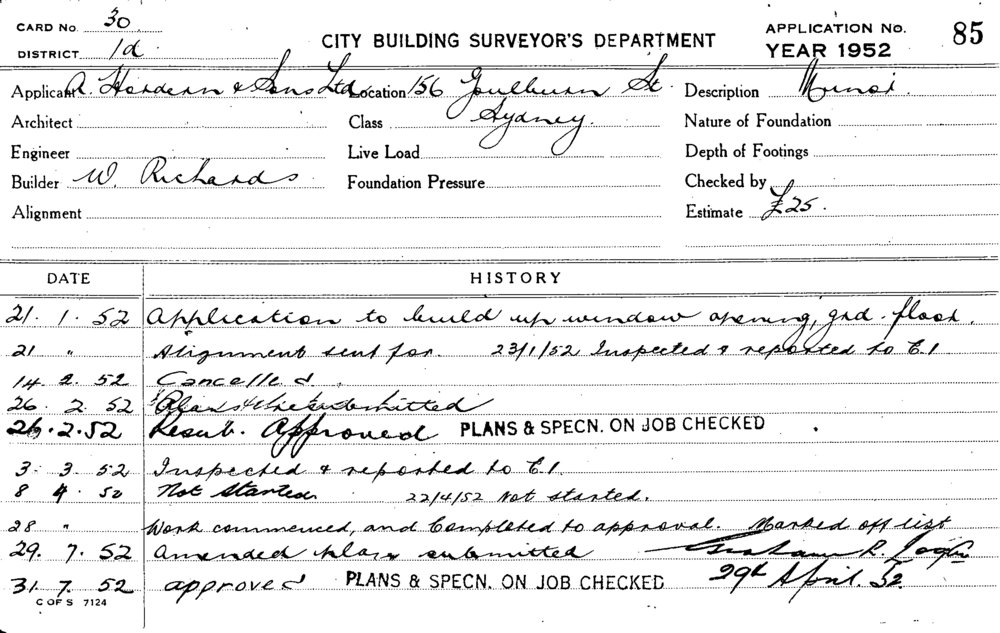 CARD No. 30
DISTRICT 1d
CITY BUILDING SURVEYOR'S DEPARTMENT
APPLICATION No. 85
YEAR 1952
Applicant A. Hordern & Sons Ltd. Location 156 Goulburn St. Description Minor.
Architect Class Sydney. Nature of Foundation
Engineer Live Load Depth of Footings
Builder W. Richards Foundation Pressure Checked by
Alignment Estimate £25.
DATE HISTORY
21. 1. 52 Application to build up window opening, grd. floor.
21 " Alignment sent for. 23/1/52 Inspected & reported to C.I
14. 2. 52 Cancelled.
26. 2. 52 Plans submitted
26.2.52 Resub. Approved PLANS & SPECN. ON JOB CHECKED
3. 3. 52 Inspected & reported to C.I.
8 4. 52 Not Started. 22/4/52 Not started.
28 " Work commenced, and Completed to approval. Marked off list
29. 7. 52 Amended plans submitted Graham R.
31. 7. 52 approved PLANS & SPECN. ON JOB CHECKED 29th April. 52.
C OF S 7124